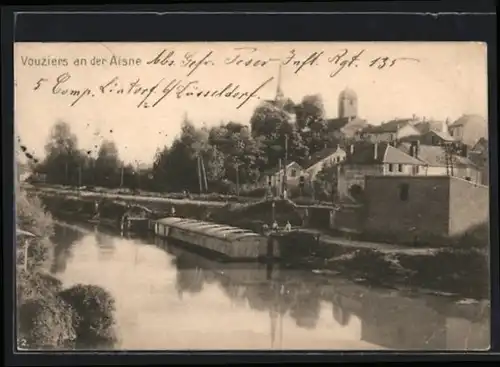 Vouziers an der Aisne Abs. Gefr. Tresor Inft. Rgt. 135
5 Comp. Lintorf b/ Düsseldorf
2.